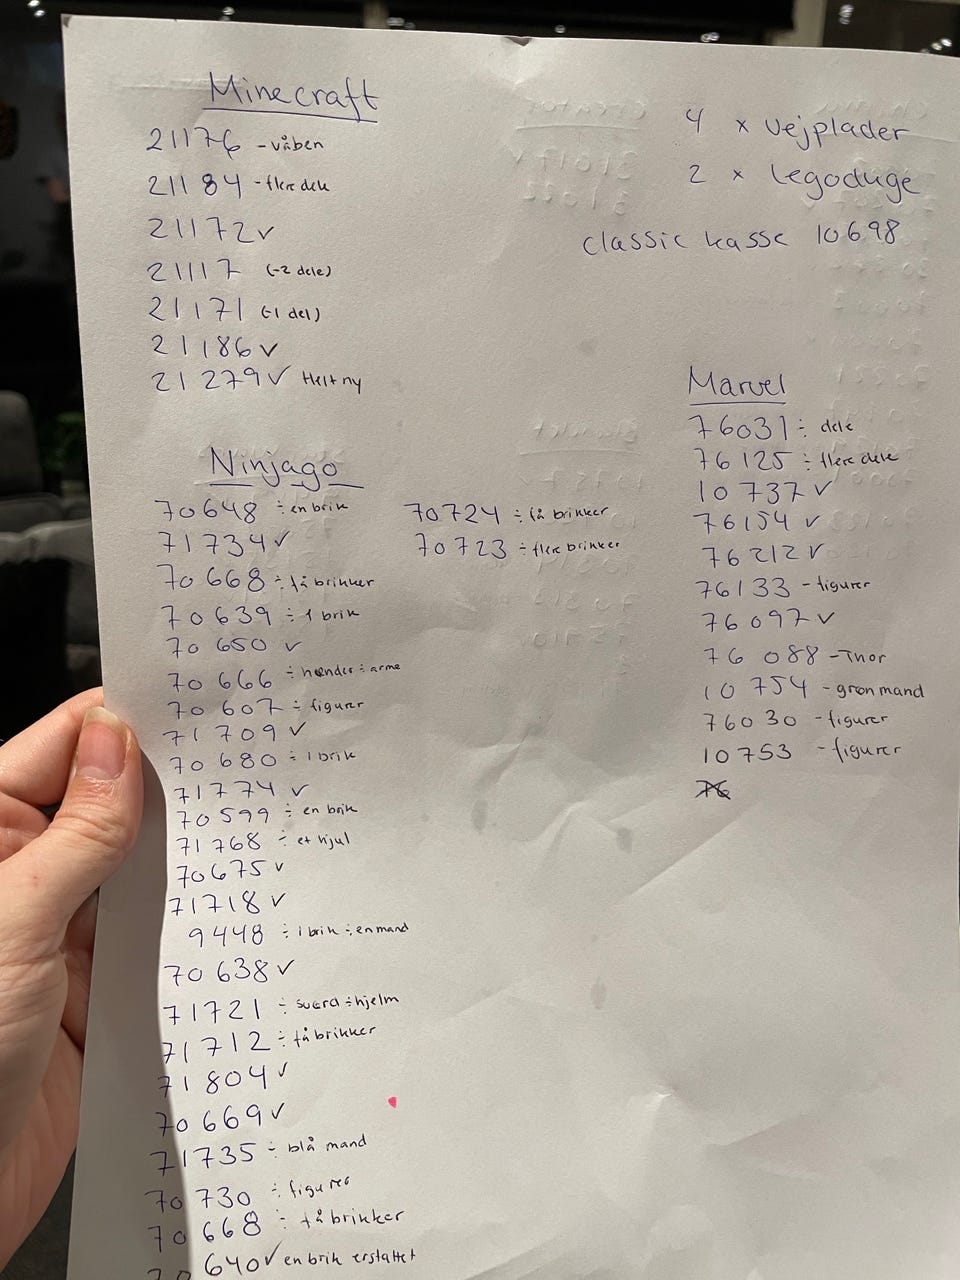 Minecraft
21176 - våben
21184 - flere dele
21172 ✓
21117 (-2 dele)
21171 (-1 del)
21186 ✓
21279 ✓ Helt ny
4 x vejplader
2 x legoduge
classic kasse 10698
Ninjago
70648 ÷ en brik
71734 ✓
70668 ÷ få brikker
70639 ÷ 1 brik
70650 ✓
70666 ÷ hænder ÷ arme
70607 ÷ figurer
71709 ✓
70680 ÷ 1 brik
71774 ✓
70599 ÷ en brik
71768 ÷ et hjul
70675 ✓
71718 ✓
9448 ÷ 1 brik ÷ en mand
70638 ✓
71721 ÷ sværd ÷ hjelm
71712 ÷ få brikker
71804 ✓
70669 ✓
71735 ÷ blå mand
70730 ÷ figurer
70668 ÷ få brikker
70640 ✓ en brik erstattet
70724 ÷ få brikker
70723 ÷ flere brikker
Marvel
76031 ÷ dele
76125 ÷ flere dele
10737 ✓
76154 ✓
76212 ✓
76133 - figurer
76097 ✓
76088 - Thor
10754 - grøn mand
76030 - figurer
10753 - figurer